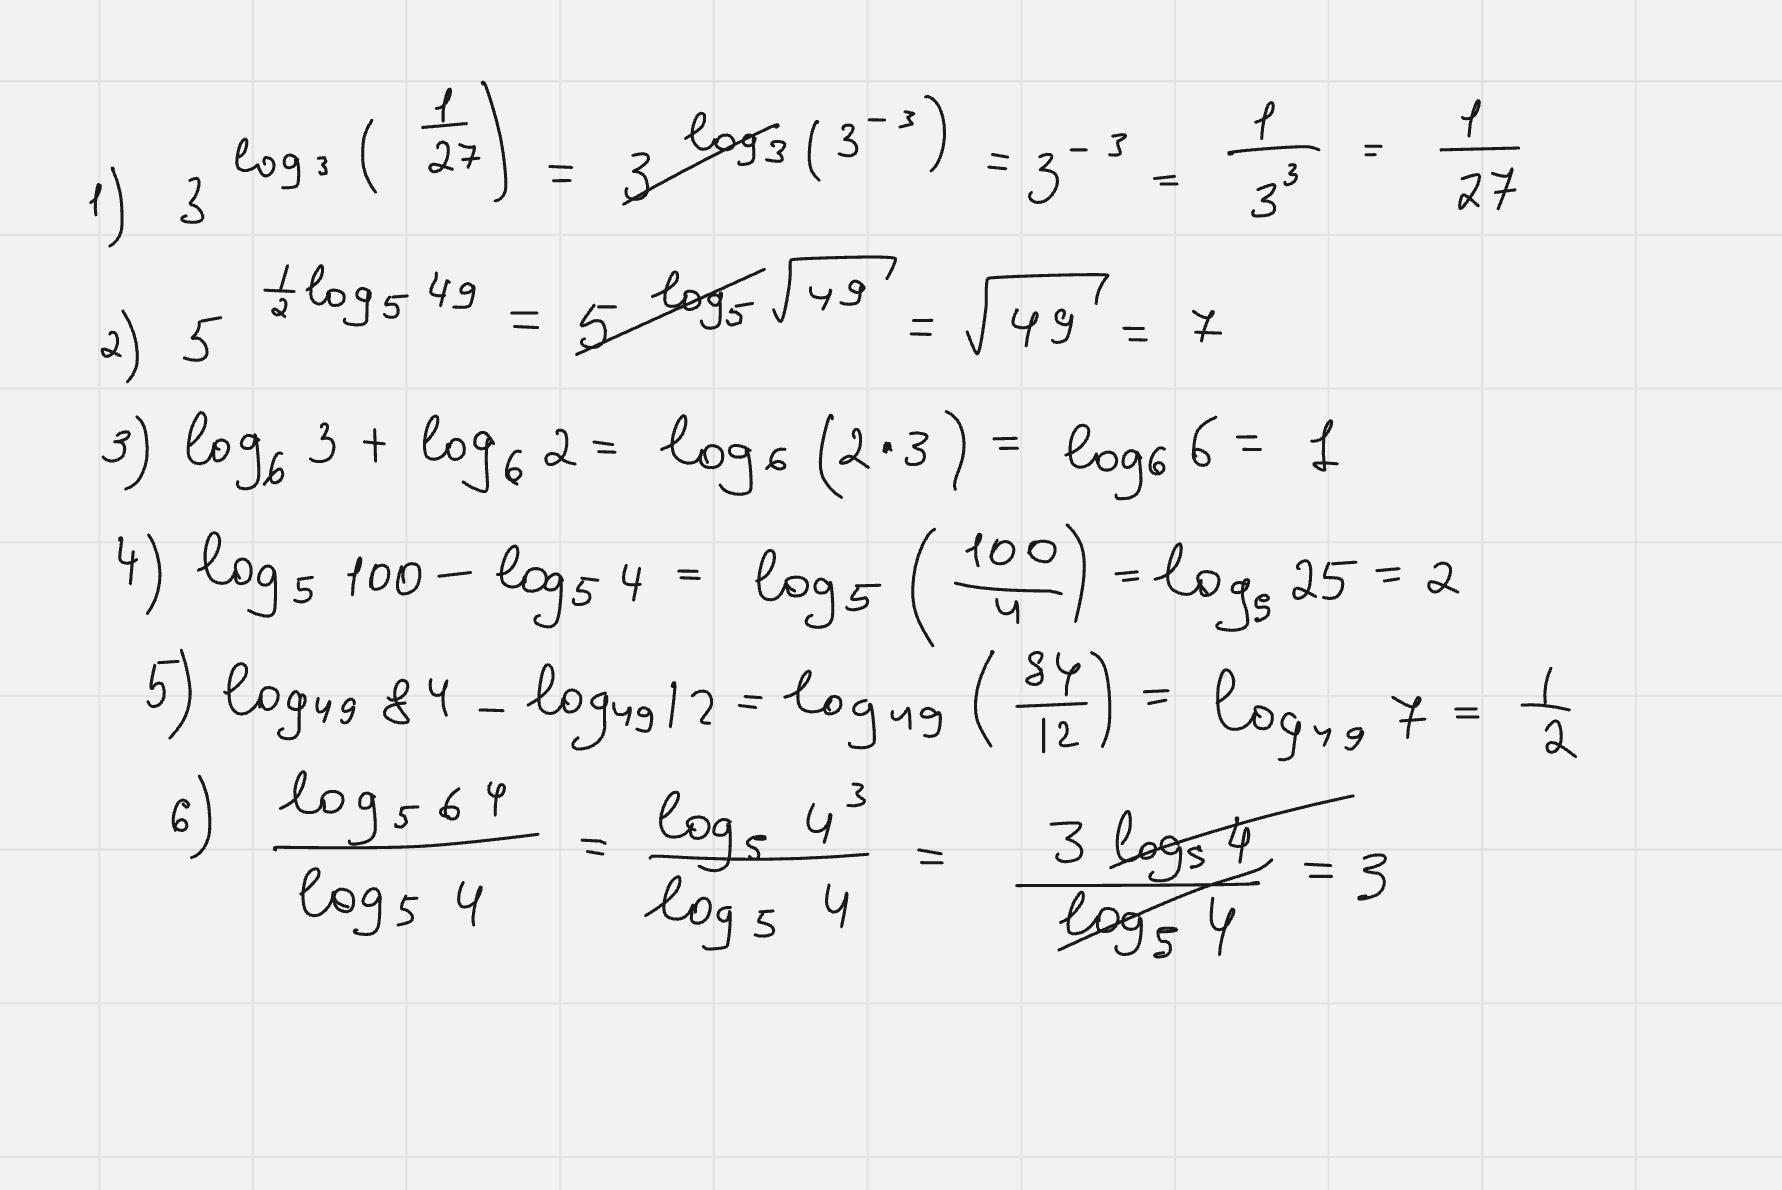 1) 3^{log_3 (1/27)} = 3^{log_3 (3^{-3})} = 3^{-3} = 1/3^3 = 1/27
2) 5^{1/2 log_5 49} = 5^{log_5 √49} = √49 = 7
3) log_6 3 + log_6 2 = log_6 (2·3) = log_6 6 = 1
4) log_5 100 - log_5 4 = log_5 (100/4) = log_5 25 = 2
5) log_49 84 - log_49 12 = log_49 (84/12) = log_49 7 = 1/2
6) log_5 64 / log_5 4 = log_5 4^3 / log_5 4 = 3 log_5 4 / log_5 4 = 3